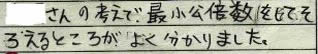 さんの考えで最小公倍数をしてそ
ろえるところがよく分かりました。